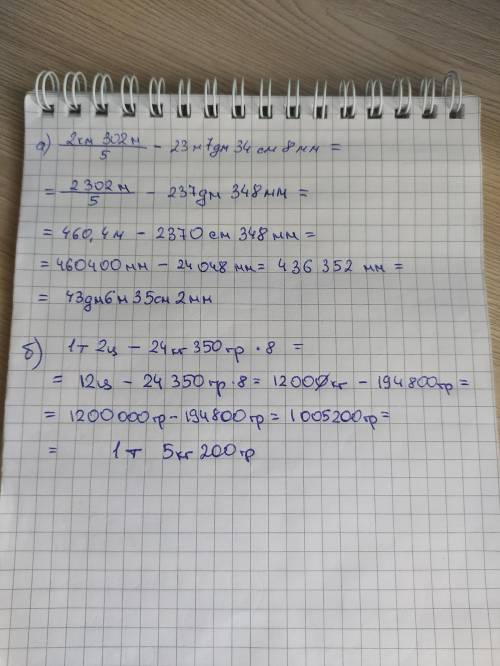 а) 2км 302м / 5 − 23м 7дм 34 см 8мм =
= 2302м / 5 − 237дм 348мм =
= 460,4м − 2370 см 348 мм =
= 460400мм − 24048 мм = 436 352 мм =
= 43дм6м 35см 2мм
б) 1т 2ц − 24кг 350гр · 8 =
= 12ц − 24 350гр · 8 = 1200кг − 194800гр =
= 1200 000гр − 194800гр = 1005200гр =
= 1т 5кг 200гр